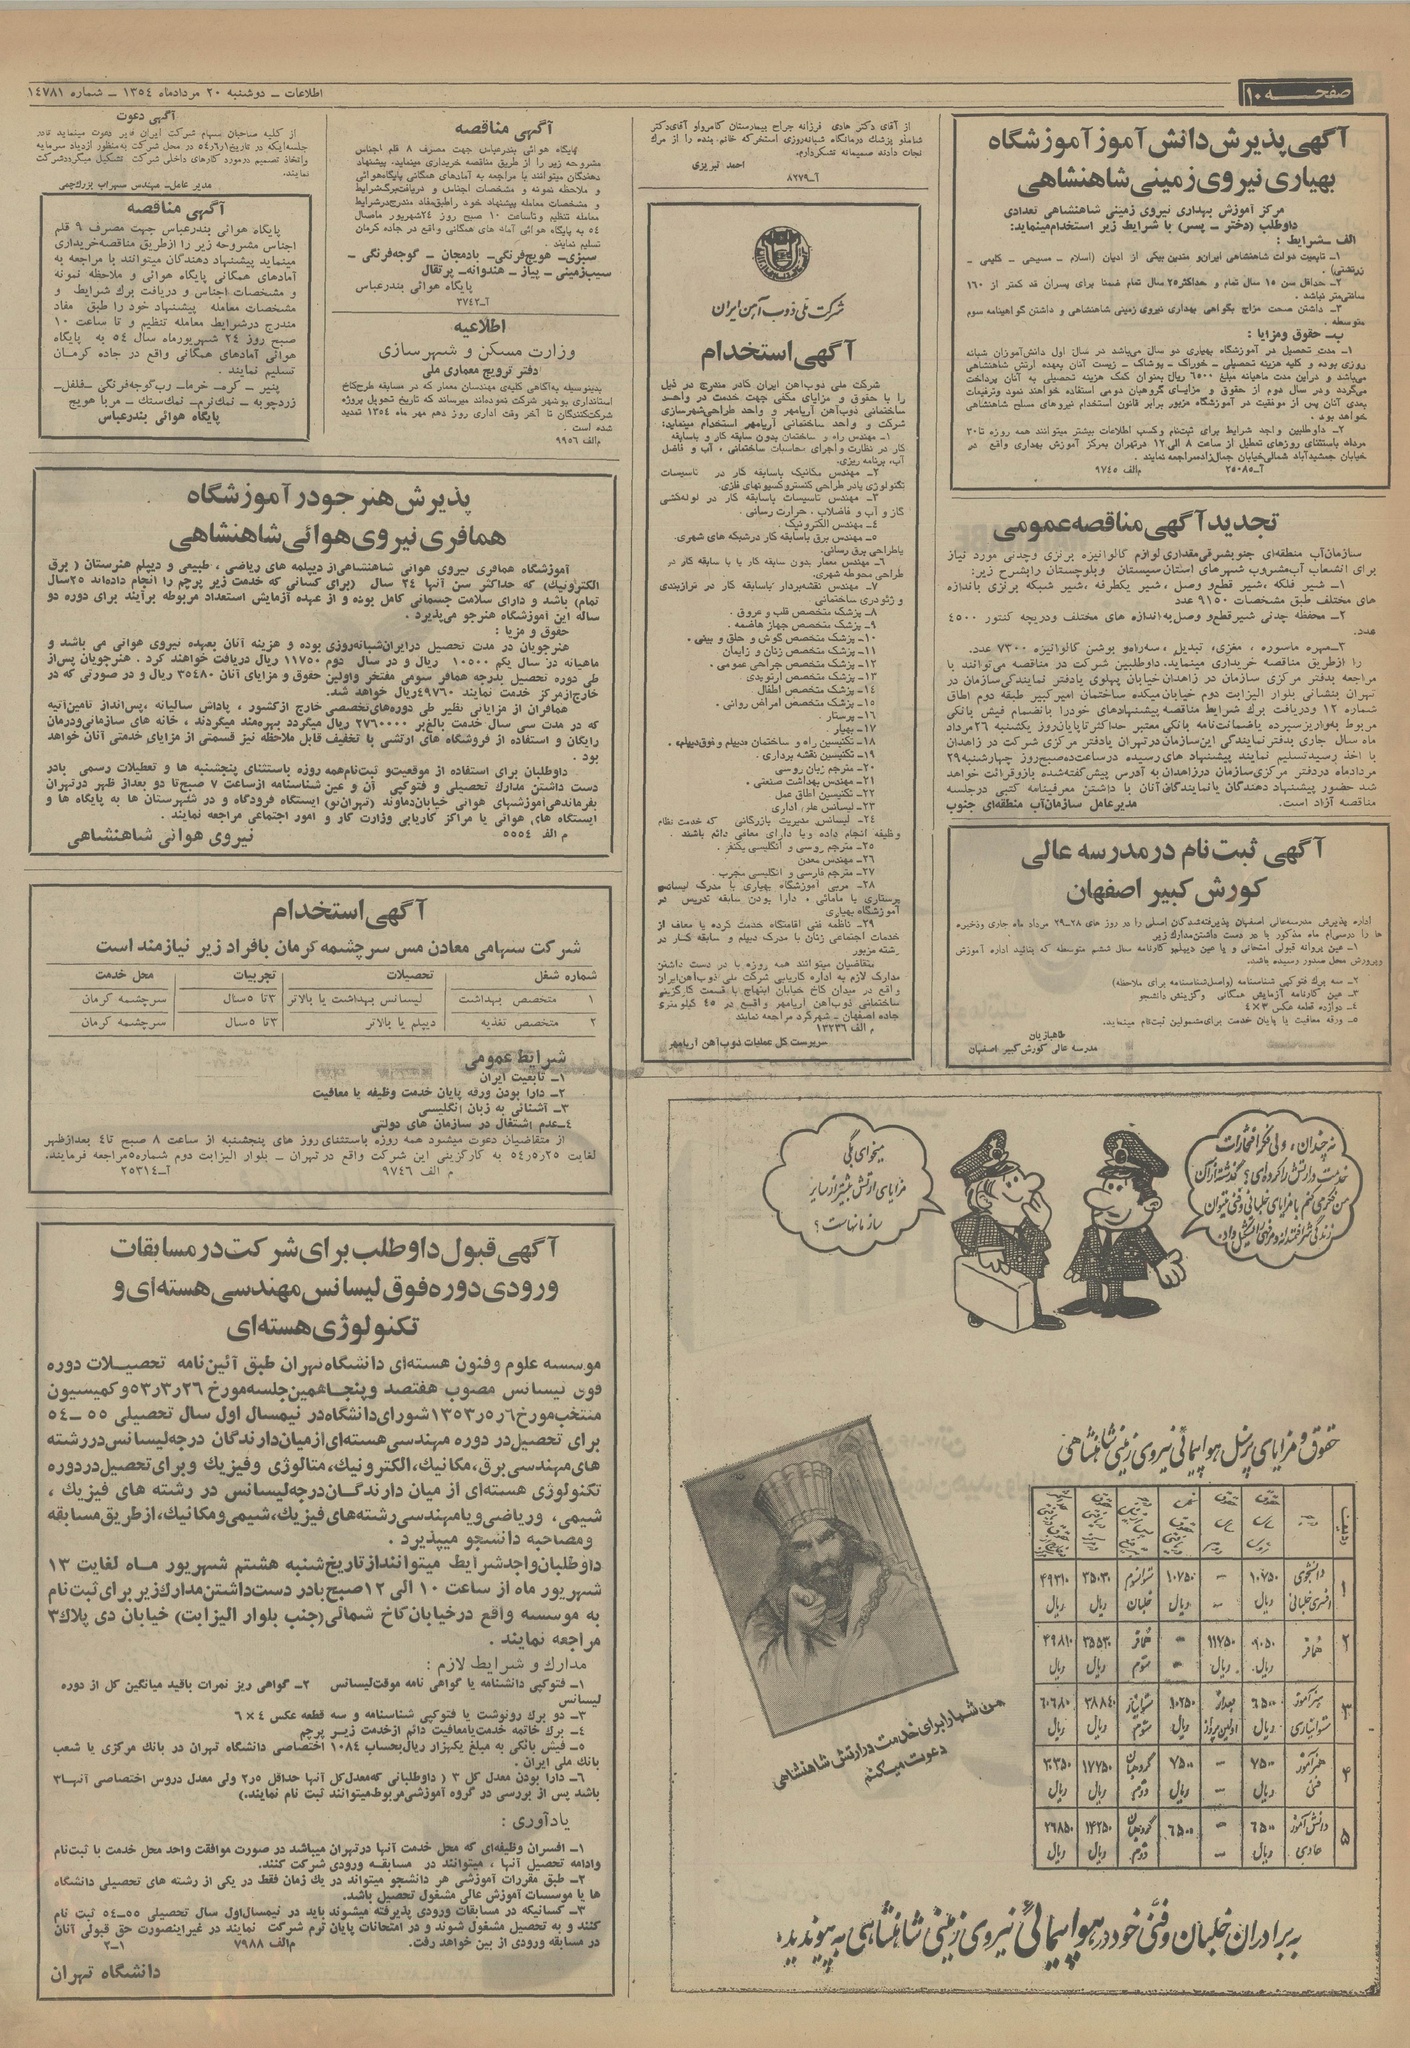 صفحه ۱۰
اطلاعات ـ دوشنبه ۲۰ مردادماه ۱۳۵۴ ـ شماره ۱۴۷۸۱
آگهی پذیرش دانش آموز آموزشگاه
بهیاری نیروی زمینی شاهنشاهی
مرکز آموزش بهداری نیروی زمینی شاهنشاهی تعدادی
داوطلب (دختر ـ پسر) با شرایط زیر استخدام مینماید:
الف ـ شرایط :
۱ـ تابعیت دولت شاهنشاهی ایران و متدین بیکی از ادیان (اسلام ـ مسیحی ـ کلیمی ـ
زرتشتی) .
۲ـ حداقل سن ۱۵ سال تمام و حداکثر ۲۵ سال تمام ضمنا برای پسران قد کمتر از ۱۶۰
سانتی‌متر نباشد .
۳ـ داشتن صحت مزاج بگواهی بهداری نیروی زمینی شاهنشاهی و داشتن گواهینامه سوم
متوسطه .
ب ـ حقوق ومزایا :
۱ـ مدت تحصیل در آموزشگاه بهیاری دو سال میباشد در سال اول دانش‌آموزان شبانه
روزی بوده و کلیه هزینه تحصیلی ـ خوراک ـ پوشاک ـ زیست آنان بعهده ارتش شاهنشاهی
میباشد و دراین مدت ماهیانه مبلغ ۶۵۰۰ ریال بعنوان کمک هزینه تحصیلی به آنان پرداخت
میگردد ودر سال دوم از حقوق و مزایای گروهبان دومی استفاده خواهند نمود وترفیعات
بعدی آنان پس از موفقیت در آموزشگاه مزبور برابر قانون استخدام نیروهای مسلح شاهنشاهی
خواهد بود .
۲ـ داوطلبین واجد شرایط برای ثبت‌نام وکسب اطلاعات بیشتر میتوانند همه روزه تا ۳۰
مرداد باستثنای روزهای تعطیل از ساعت ۸ الی ۱۲ درتهران بمرکز آموزش بهداری واقع در
خیابان جمشیدآباد شمالی خیابان جمال‌زاده مراجعه نمایند .
آـ ۲۵۰۸۵ م‌الف ۹۷۴۵
تجدید آگهی مناقصه عمومی
سازمان آب منطقه‌ای جنوبشرقی مقداری لوازم گالوانیزه برنزی وچدنی مورد نیاز
برای انشعاب آب مشروب شهرهای استان سیستان وبلوچستان را بشرح زیر:
۱ـ شیر فلکه ، شیر قطع و وصل ، شیر یکطرفه ، شیر شبکه برنزی باندازه
های مختلف طبق مشخصات ۹۱۵۰ عدد
۲ـ محفظه چدنی شیر قطع و وصل به اندازه های مختلف ودریچه کنتور ۴۵۰۰
عدد.
۳ـ مهره ماسوره ، مغزی ، تبدیل ، سه‌راه و بوشن گالوانیزه ۷۳۰۰ عدد.
را از طریق مناقصه خریداری مینماید. داوطلبین شرکت در مناقصه می‌توانند با
مراجعه بدفتر مرکزی سازمان در زاهدان خیابان پهلوی یا دفتر نمایندگی سازمان در
تهران بنشانی بلوار الیزابت دوم خیابان میکده ساختمان امیرکبیر طبقه دوم اطاق
شماره ۱۲ ودریافت برك شرایط مناقصه پیشنهادهای خود را بانضمام فیش بانکی
مربوط به واریز سپرده یا ضمانت‌نامه بانکی معتبر حداکثر تا پایان روز یکشنبه ۲۶ مرداد
ماه سال جاری بدفتر نمایندگی این سازمان درتهران یا دفتر مرکزی شرکت در زاهدان
با اخذ رسید تسلیم نمایند پیشنهاد های رسیده در ساعت ده صبح روز چهارشنبه ۲۹
مردادماه در دفتر مرکزی سازمان در زاهدان به آدرس پیش گفته‌شده باز و قرائت خواهد
شد حضور پیشنهاد دهندگان یا نمایندگان آنان با داشتن معرفینامه کتبی در جلسه
مناقصه آزاد است. مدیر عامل سازمان آب منطقه‌ای جنوب
آگهی ثبت نام در مدرسه عالی
کورش کبیر اصفهان
اداره پذیرش مدرسه‌عالی اصفهان پذیرفته‌شدگان اصلی را در روز های ۲۸ـ۲۹ مرداد ماه جاری وذخیره
ها را درسی‌ام ماه مذکور با در دست داشتن مدارک زیر
۱ـ عین پروانه قبولی امتحانی و یا عین دیپلم و کارنامه سال ششم متوسطه که بتائید اداره آموزش
وپرورش محل صدور رسیده باشد.
۲ـ سه برك فتوکپی شناسنامه (واصل شناسنامه برای ملاحظه)
۳ـ عین کارنامه آزمایش همگانی وگزینش دانشجو
۴ـ دوازده قطعه عکس ۳×۴
۵ـ ورقه معافیت یا پایان خدمت برای مشمولین ثبت‌نام مینماید.
طاهبازیان
مدرسه عالی کورش کبیر اصفهان
از آقای دکتر هادی فرزانه جراح بیمارستان کامرو و آقای دکتر
شاملو پزشك درمانگاه شبانه‌روزی استخر که خانم بنده را از مرك
نجات دادند صمیمانه تشکر دارم.
احمد تبریزی
آـ ۸۲۷۹
شرکت ملی ذوب آهن ایران
آگهی استخدام
شرکت ملی ذوب‌آهن ایران کادر مندرج در ذیل
را با حقوق و مزایای مکفی جهت خدمت در واحد
ساختمانی ذوب‌آهن آریامهر و واحد طراحی شهرسازی
شرکت و واحد ساختمانی آریامهر استخدام مینماید:
۱ـ مهندس راه و ساختمان بدون سابقه کار و باسابقه
کار در نظارت و اجرای محاسبات ساختمانی ، آب و فاضل
آب، برنامه ریزی.
۲ـ مهندس مکانیک باسابقه کار در تاسیسات
تکنولوژی یا در طراحی کنستروکسیونهای فلزی.
۳ـ مهندس تاسیسات باسابقه کار در لوله‌کشی
گاز و آب و فاضلاب ، حرارت رسانی .
۴ـ مهندس الکترونیک .
۵ـ مهندس برق باسابقه کار در شبکه های شهری.
یا طراحی برق رسانی.
۶ـ مهندس معمار بدون سابقه کار یا با سابقه کار در
طراحی محوطه شهری.
۷ـ مهندس نقشه‌بردار باسابقه کار در ترازبندی
و ژئودزی ساختمانی .
۸ـ پزشک متخصص قلب و عروق .
۹ـ پزشک متخصص جهاز هاضمه .
۱۰ـ پزشک متخصص گوش و حلق و بینی .
۱۱ـ پزشک متخصص زنان و زایمان
۱۲ـ پزشک متخصص جراحی عمومی .
۱۳ـ پزشک متخصص ارتوپدی
۱۴ـ پزشک متخصص اطفال
۱۵ـ پزشک متخصص امراض روانی .
۱۶ـ پرستار .
۱۷ـ بهیار .
۱۸ـ تکنیسین راه و ساختمان «دیپلم و فوق دیپلم» .
۱۹ـ تکنیسین نقشه برداری .
۲۰ـ مترجم زبان روسی
۲۱ـ مهندس بهداشت صنعتی .
۲۲ـ تکنیسین اطاق عمل
۲۳ـ لیسانس علوم اداری
۲۴ـ لیسانس مدیریت بازرگانی که خدمت نظام
وظیفه انجام داده ویا دارای معافی دائم باشند .
۲۵ـ مترجم روسی و انگلیسی یکنفر .
۲۶ـ مهندس معدن
۲۷ـ مترجم فارسی و انگلیسی مجرب .
۲۸ـ مربی آموزشگاه بهیاری با مدرک لیسانس
پرستاری یا مامائی ، دارا بودن سابقه تدریس در
آموزشگاه بهیاری
۲۹ـ ناظمه فنی اقامتگاه خدمت کرده یا معاف از
خدمات اجتماعی زنان با مدرک دیپلم و سابقه کار در
رشته مزبور
متقاضیان میتوانند همه روزه با در دست داشتن
مدارک لازم به اداره کاریابی شرکت ملی ذوب‌آهن ایران
واقع در میدان کاخ خیابان ابتهاج یا قسمت کارگزینی
ساختمانی ذوب‌آهن آریامهر واقع در ۴۵ کیلومتری
جاده اصفهان ـ شهرکرد مراجعه نمایند
م الف ۱۳۲۳۶
سرپرست کل عملیات ذوب آهن آریامهر
آگهی مناقصه
پایگاه هوائی بندرعباس جهت مصرف ۸ قلم اجناس
مشروحه زیر را از طریق مناقصه خریداری مینماید. پیشنهاد
دهندگان میتوانند با مراجعه به آمادهای همگانی پایگاه هوائی
و ملاحظه نمونه و مشخصات اجناس و دریافت برگ شرایط
و مشخصات معامله پیشنهاد خود را طبق مفاد مندرج در شرایط
معامله تنظیم و تا ساعت ۱۰ صبح روز ۲۴ شهریور ماه سال
۵۴ به پایگاه هوائی آماد های همگانی واقع در جاده کرمان
تسلیم نمایند .
سبزی ـ هویج فرنگی ـ بادمجان ـ گوجه فرنگی ـ
سیب زمینی ـ پیاز ـ هندوانه ـ پرتقال
پایگاه هوائی بندرعباس
آـ ۳۷۴۲
اطلاعیه
وزارت مسکن و شهر سازی
دفتر ترویج معماری ملی
بدینوسیله به‌آگاهی کلیه‌ی مهندسان معمار که در مسابقه طرح کاخ
استانداری بوشهر شرکت نموده‌اند میرساند که تاریخ تحویل پروژه
شرکت‌کنندگان تا آخر وقت اداری روز دهم مهر ماه ۱۳۵۴ تمدید
شده است .
م‌الف ۹۹۵۶
آگهی دعوت
از کلیه صاحبان سهام شرکت ایران فایر دعوت مینماید تا در
جلسه‌ایکه در تاریخ ۵۴/۶/۱ در محل شرکت به‌منظور ازدیاد سرمایه
و اتخاذ تصمیم در مورد کارهای داخلی شرکت تشکیل میگردد شرکت
نمایند.
مدیر عامل ـ مهندس سهراب بزرك‌چمی
آگهی مناقصه
پایگاه هوائی بندرعباس جهت مصرف ۹ قلم
اجناس مشروحه زیر را از طریق مناقصه خریداری
مینماید پیشنهاد دهندگان میتوانند با مراجعه به
آمادهای همگانی پایگاه هوائی و ملاحظه نمونه
و مشخصات اجناس و دریافت برك شرایط و
مشخصات معامله پیشنهاد خود را طبق مفاد
مندرج در شرایط معامله تنظیم و تا ساعت ۱۰
صبح روز ۲۴ شهریورماه سال ۵۴ به پایگاه
هوائی آمادهای همگانی واقع در جاده کرمان
تسلیم نمایند .
پنیر ـ کره ـ خرما ـ رب گوجه فرنگی ـ فلفل ـ
زردچوبه ـ نمک نرم ـ نمک سنك ـ مربا هویج
پایگاه هوائی بندرعباس
پذیرش هنرجو در آموزشگاه
همافری نیروی هوائی شاهنشاهی
آموزشگاه همافری نیروی هوائی شاهنشاهی از دیپلمه های ریاضی ، طبیعی و دیپلم هنرستان ( برق
الکترونیك) که حداکثر سن آنها ۲۴ سال (برای کسانی که خدمت زیر پرچم را انجام داده‌اند ۲۵ سال
تمام) باشد و دارای سلامت جسمانی کامل بوده و از عهده آزمایش استعداد مربوطه برآیند برای دوره دو
ساله این آموزشگاه هنرجو می‌پذیرد .
حقوق و مزایا :
هنرجویان در مدت تحصیل در ایران شبانه‌روزی بوده و هزینه آنان بعهده نیروی هوائی می باشد و
ماهیانه در سال یکم ۱۰۵۰۰ ریال و در سال دوم ۱۱۷۵۰ ریال دریافت خواهند کرد . هنرجویان پس از
طی دوره تحصیل بدرجه همافر سومی مفتخر و اولین حقوق و مزایای آنان ۳۵۴۸۰ ریال و در صورتی که در
خارج از مرکز خدمت نمایند ۴۹۷۶۰ ریال خواهد شد.
همافران از مزایائی نظیر طی دوره‌های تخصصی خارج از کشور ، پاداش سالیانه ، پس‌انداز تامین آتیه
که در مدت سی سال خدمت بالغ بر ۲۷۶۰۰۰۰ ریال میگردد بهره‌مند میگردند ، خانه های سازمانی ودرمان
رایگان و استفاده از فروشگاه های ارتشی با تخفیف قابل ملاحظه نیز قسمتی از مزایای خدمتی آنان خواهد
بود .
داوطلبان برای استفاده از موقعیت و ثبت‌نام همه روزه باستثنای پنجشنبه ها و تعطیلات رسمی با در
دست داشتن مدارك تحصیلی و فتوکپی آن و عین شناسنامه از ساعت ۷ صبح تا دو بعداز ظهر در تهران
بفرماندهی آموزشهای هوائی خیابان دماوند (تهران‌نو) ایستگاه فرودگاه و در شهرستان ها به پایگاه ها و
ایستگاه های هوائی یا مراکز کاریابی وزارت کار و امور اجتماعی مراجعه نمایند .
م الف ۵۵۵۴ نیروی هوائی شاهنشاهی
آگهی استخدام
شرکت سهامی معادن مس سرچشمه کرمان بافراد زیر نیازمند است
شماره شغل تحصیلات تجربیات محل خدمت
۱ متخصص بهداشت لیسانس بهداشت یا بالاتر ۳ تا ۵ سال سرچشمه کرمان
۲ متخصص تغذیه دیپلم یا بالاتر ۳ تا ۵ سال سرچشمه کرمان
شرایط عمومی
۱ـ تابعیت ایران
۲ـ دارا بودن ورقه پایان خدمت وظیفه یا معافیت
۳ـ آشنائی به زبان انگلیسی
۴ـ عدم اشتغال در سازمان های دولتی
از متقاضیان دعوت میشود همه روزه باستثنای روز های پنجشنبه از ساعت ۸ صبح تا ۴ بعدازظهر
لغایت ۵۴/۵/۲۵ به کارگزینی این شرکت واقع در تهران ـ بلوار الیزابت دوم شماره ۵ مراجعه فرمایند.
م الف ۹۷۴۶ آـ ۲۵۳۱۴
آگهی قبول داوطلب برای شرکت در مسابقات
ورودی دوره فوق لیسانس مهندسی هسته‌ای و
تکنولوژی هسته‌ای
موسسه علوم وفنون هسته‌ای دانشگاه تهران طبق آئین‌نامه تحصیلات دوره
فوق لیسانس مصوب هفتصد و پنجاهمین جلسه مورخ ۵۳/۳/۲۶ و کمیسیون
منتخب مورخ ۱۳۵۳/۵/۶ شورای دانشگاه در نیمسال اول سال تحصیلی ۵۵ ـ ۵۴
برای تحصیل در دوره مهندسی هسته‌ای از میان دارندگان درجه لیسانس در رشته
های مهندسی برق، مکانیك، الکترونیك، متالوژی و فیزیك و برای تحصیل در دوره
تکنولوژی هسته‌ای از میان دارندگان درجه لیسانس در رشته های فیزیك ،
شیمی، وریاضی و یا مهندسی رشته‌های فیزیك، شیمی و مکانیك، از طریق مسابقه
ومصاحبه دانشجو میپذیرد .
داوطلبان واجد شرایط میتوانند از تاریخ شنبه هشتم شهریور ماه لغایت ۱۳
شهریور ماه از ساعت ۱۰ الی ۱۲ صبح با در دست داشتن مدارك زیر برای ثبت نام
به موسسه واقع در خیابان کاخ شمالی (جنب بلوار الیزابت) خیابان دی پلاك ۳
مراجعه نمایند .
مدارك و شرایط لازم :
۱ـ فتوکپی دانشنامه یا گواهی نامه موقت لیسانس ۲ـ گواهی ریز نمرات باقید میانگین کل از دوره
لیسانس
۳ـ دو برك رونوشت یا فتوکپی شناسنامه و سه قطعه عکس ۴ × ۶
۴ـ برك خاتمه خدمت یا معافیت دائم از خدمت زیر پرچم
۵ـ فیش بانکی به مبلغ یکهزار ریال بحساب ۱۰۸۴ اختصاصی دانشگاه تهران در بانك مرکزی یا شعب
بانك ملی ایران .
۶ـ دارا بودن معدل کل ۳ ( داوطلبانی که معدل کل آنها حداقل ۲/۵ ولی معدل دروس اختصاصی آنها ۳
باشد پس از بررسی در گروه آموزشی مربوط میتوانند ثبت نام نمایند.)
یادآوری :
۱ـ افسران وظیفه‌ای که محل خدمت آنها در تهران میباشد در صورت موافقت واحد محل خدمت با ثبت‌نام
وادامه تحصیل آنها ، میتوانند در مسابقه ورودی شرکت کنند.
۲ـ طبق مقررات آموزشی هر دانشجو میتواند در یك زمان فقط در یکی از رشته های تحصیلی دانشگاه
ها یا موسسات آموزش عالی مشغول تحصیل باشد.
۳ـ کسانیکه در مسابقات ورودی پذیرفته میشوند باید در نیمسال اول سال تحصیلی ۵۵ـ۵۴ ثبت نام
کنند و به تحصیل مشغول شوند و در امتحانات پایان ترم شرکت نمایند در غیر اینصورت حق قبولی آنان
در مسابقه ورودی از بین خواهد رفت. م‌الف ۷۹۸۸ ۱ـ۲
دانشگاه تهران
میخوای بگی
مزایای ارتش بیشتر از سایر
سازمانهاست؟
نه چندان ، ولی فکر افتخارات
خدمت در ارتش را کرده‌ای؟ گذشته از آن
من فکر می کنم با مزایای خلبانی و فنی میتوان
زندگی شرافتمندانه و مرفهی را تشکیل داد.
من شما را برای خدمت در ارتش شاهنشاهی
دعوت میکنم
حقوق و مزایای پرسنل هواپیمائی نیروی زمینی شاهنشاهی
ردیف
۱ دانشجوی افسری خلبانی ۱۰۷۵۰ ریال ـ ۱۰۷۵۰ ریال ستوانسوم خلبان ۳۵۰۳۰ ریال ۴۹۳۱۰ ریال
۲ همافر ۹۰۵۰ ریال ۱۱۷۵۰ ریال ـ همافر سوم ۳۵۵۳۰ ریال ۴۹۸۱۰ ریال
۳ هنرآموز ستوانیاری ۶۵۰۰ ریال بعد از اولین پرواز ۱۰۲۵۰ ریال ستوانیار سوم ۳۸۸۴۰ ریال ۶۰۶۸۰ ریال
۴ هنرآموز فنی ۷۵۰۰ ریال ـ ۷۵۰۰ ریال گروهبان دوم ۱۷۷۵۰ ریال ریال
۵ دانش آموز عادی ۶۵۰۰ ریال ـ ۶۵۰۰ گروهبان دوم ۱۴۲۵۰ ریال ۲۶۸۵۰ ریال
به برادران خلبان و فنی خود در هواپیمائی نیروی زمینی شاهنشاهی به پیوندید.